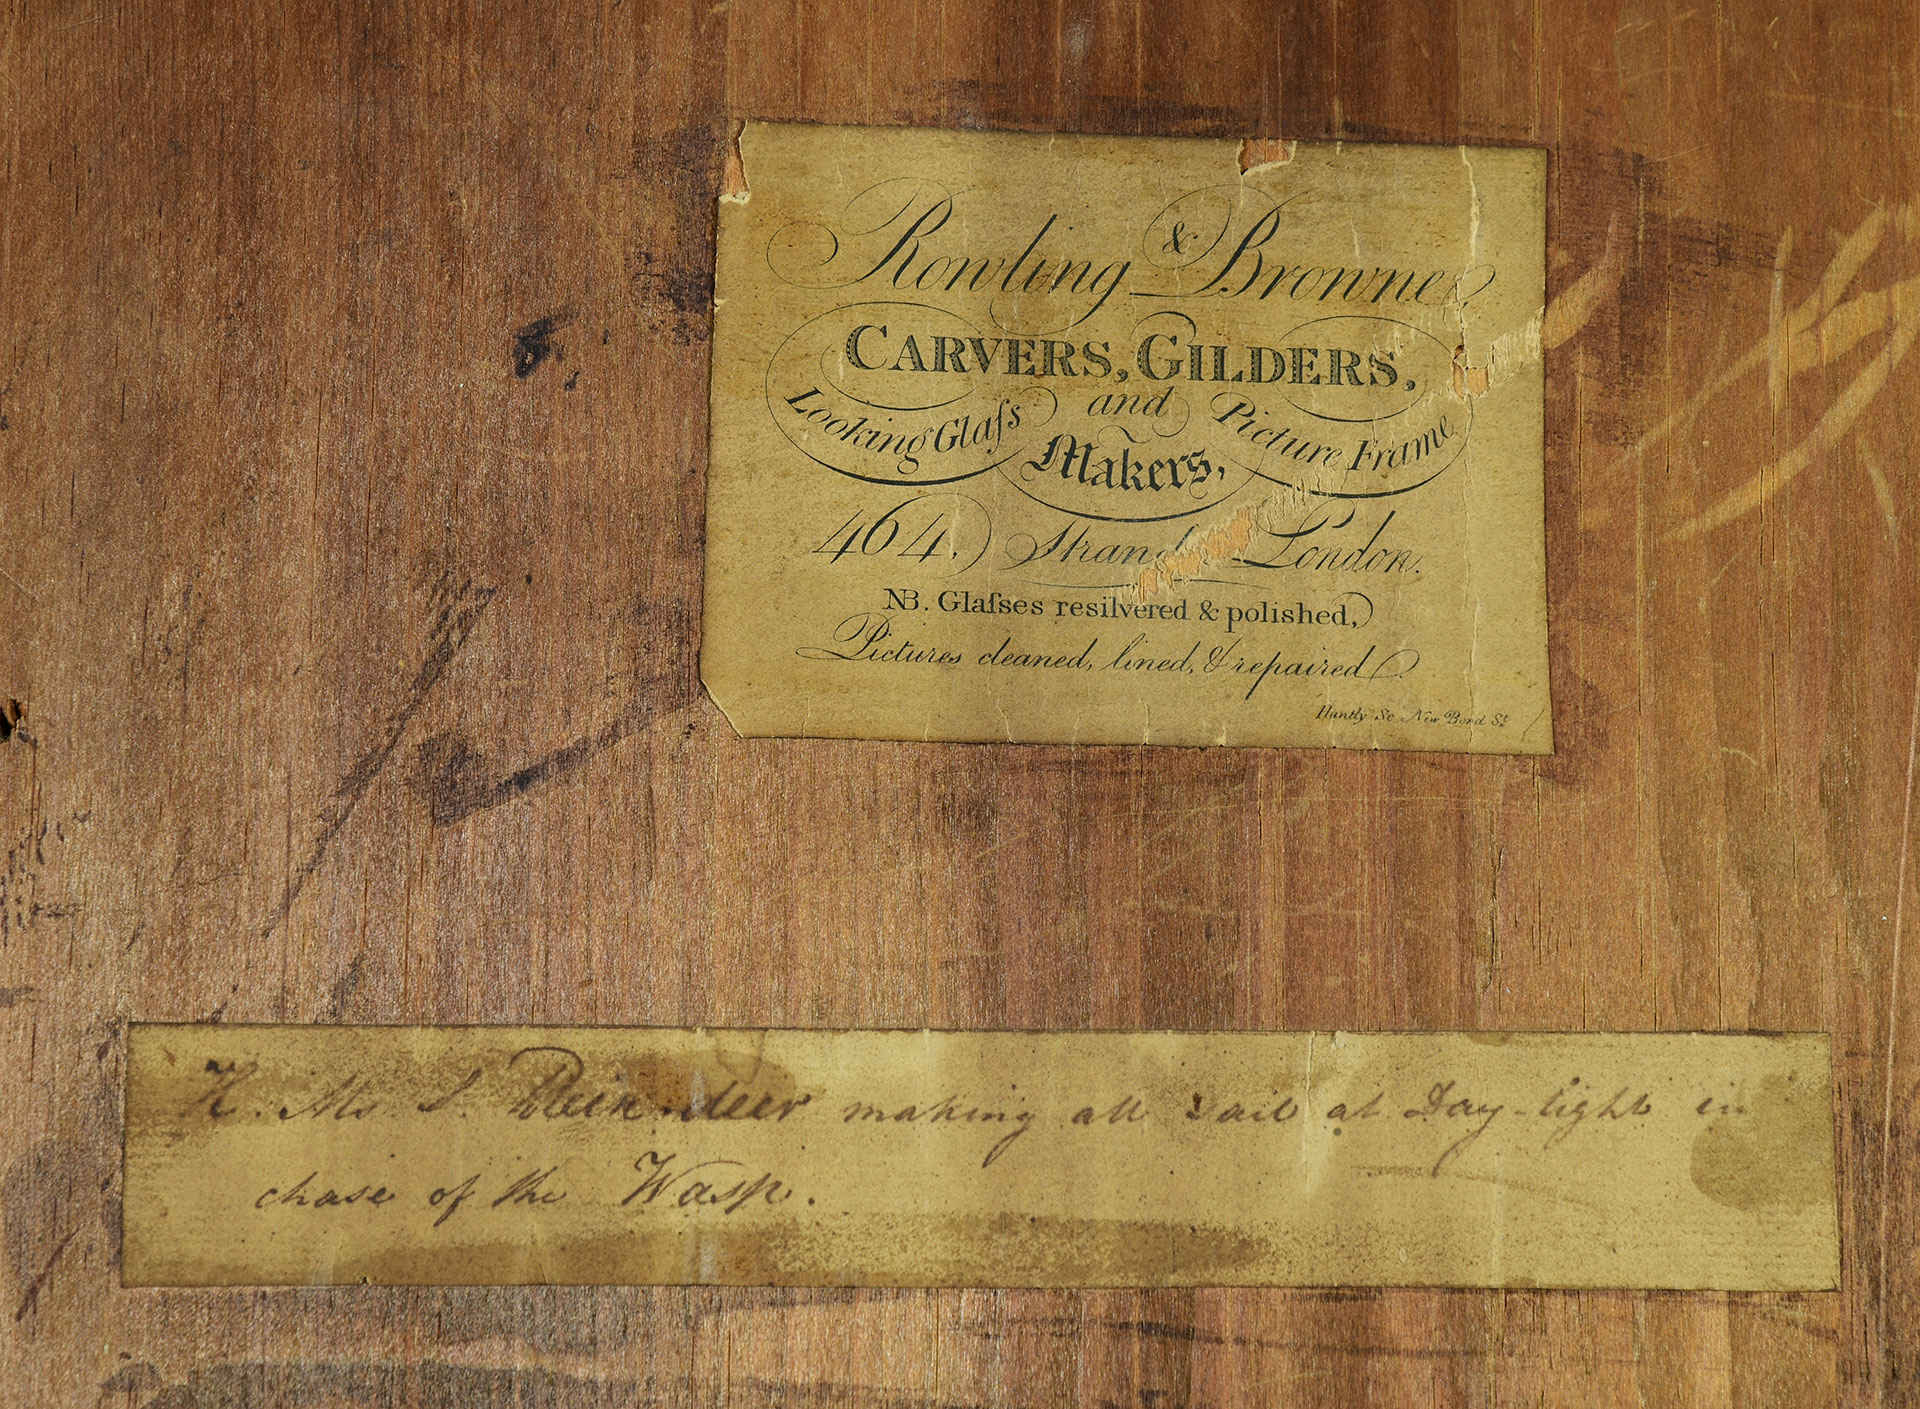 Rowling & Browne,
CARVERS, GILDERS,
Looking Glaſs and Picture Frame
Makers,
464, Strand London.
NB. Glaſses resilvered & polished,
Pictures cleaned, lined, & repaired
Huntly Sc New Bond St.
H. Ms S. Rein-deer making all sail at Day-light in
chase of the Wasp.